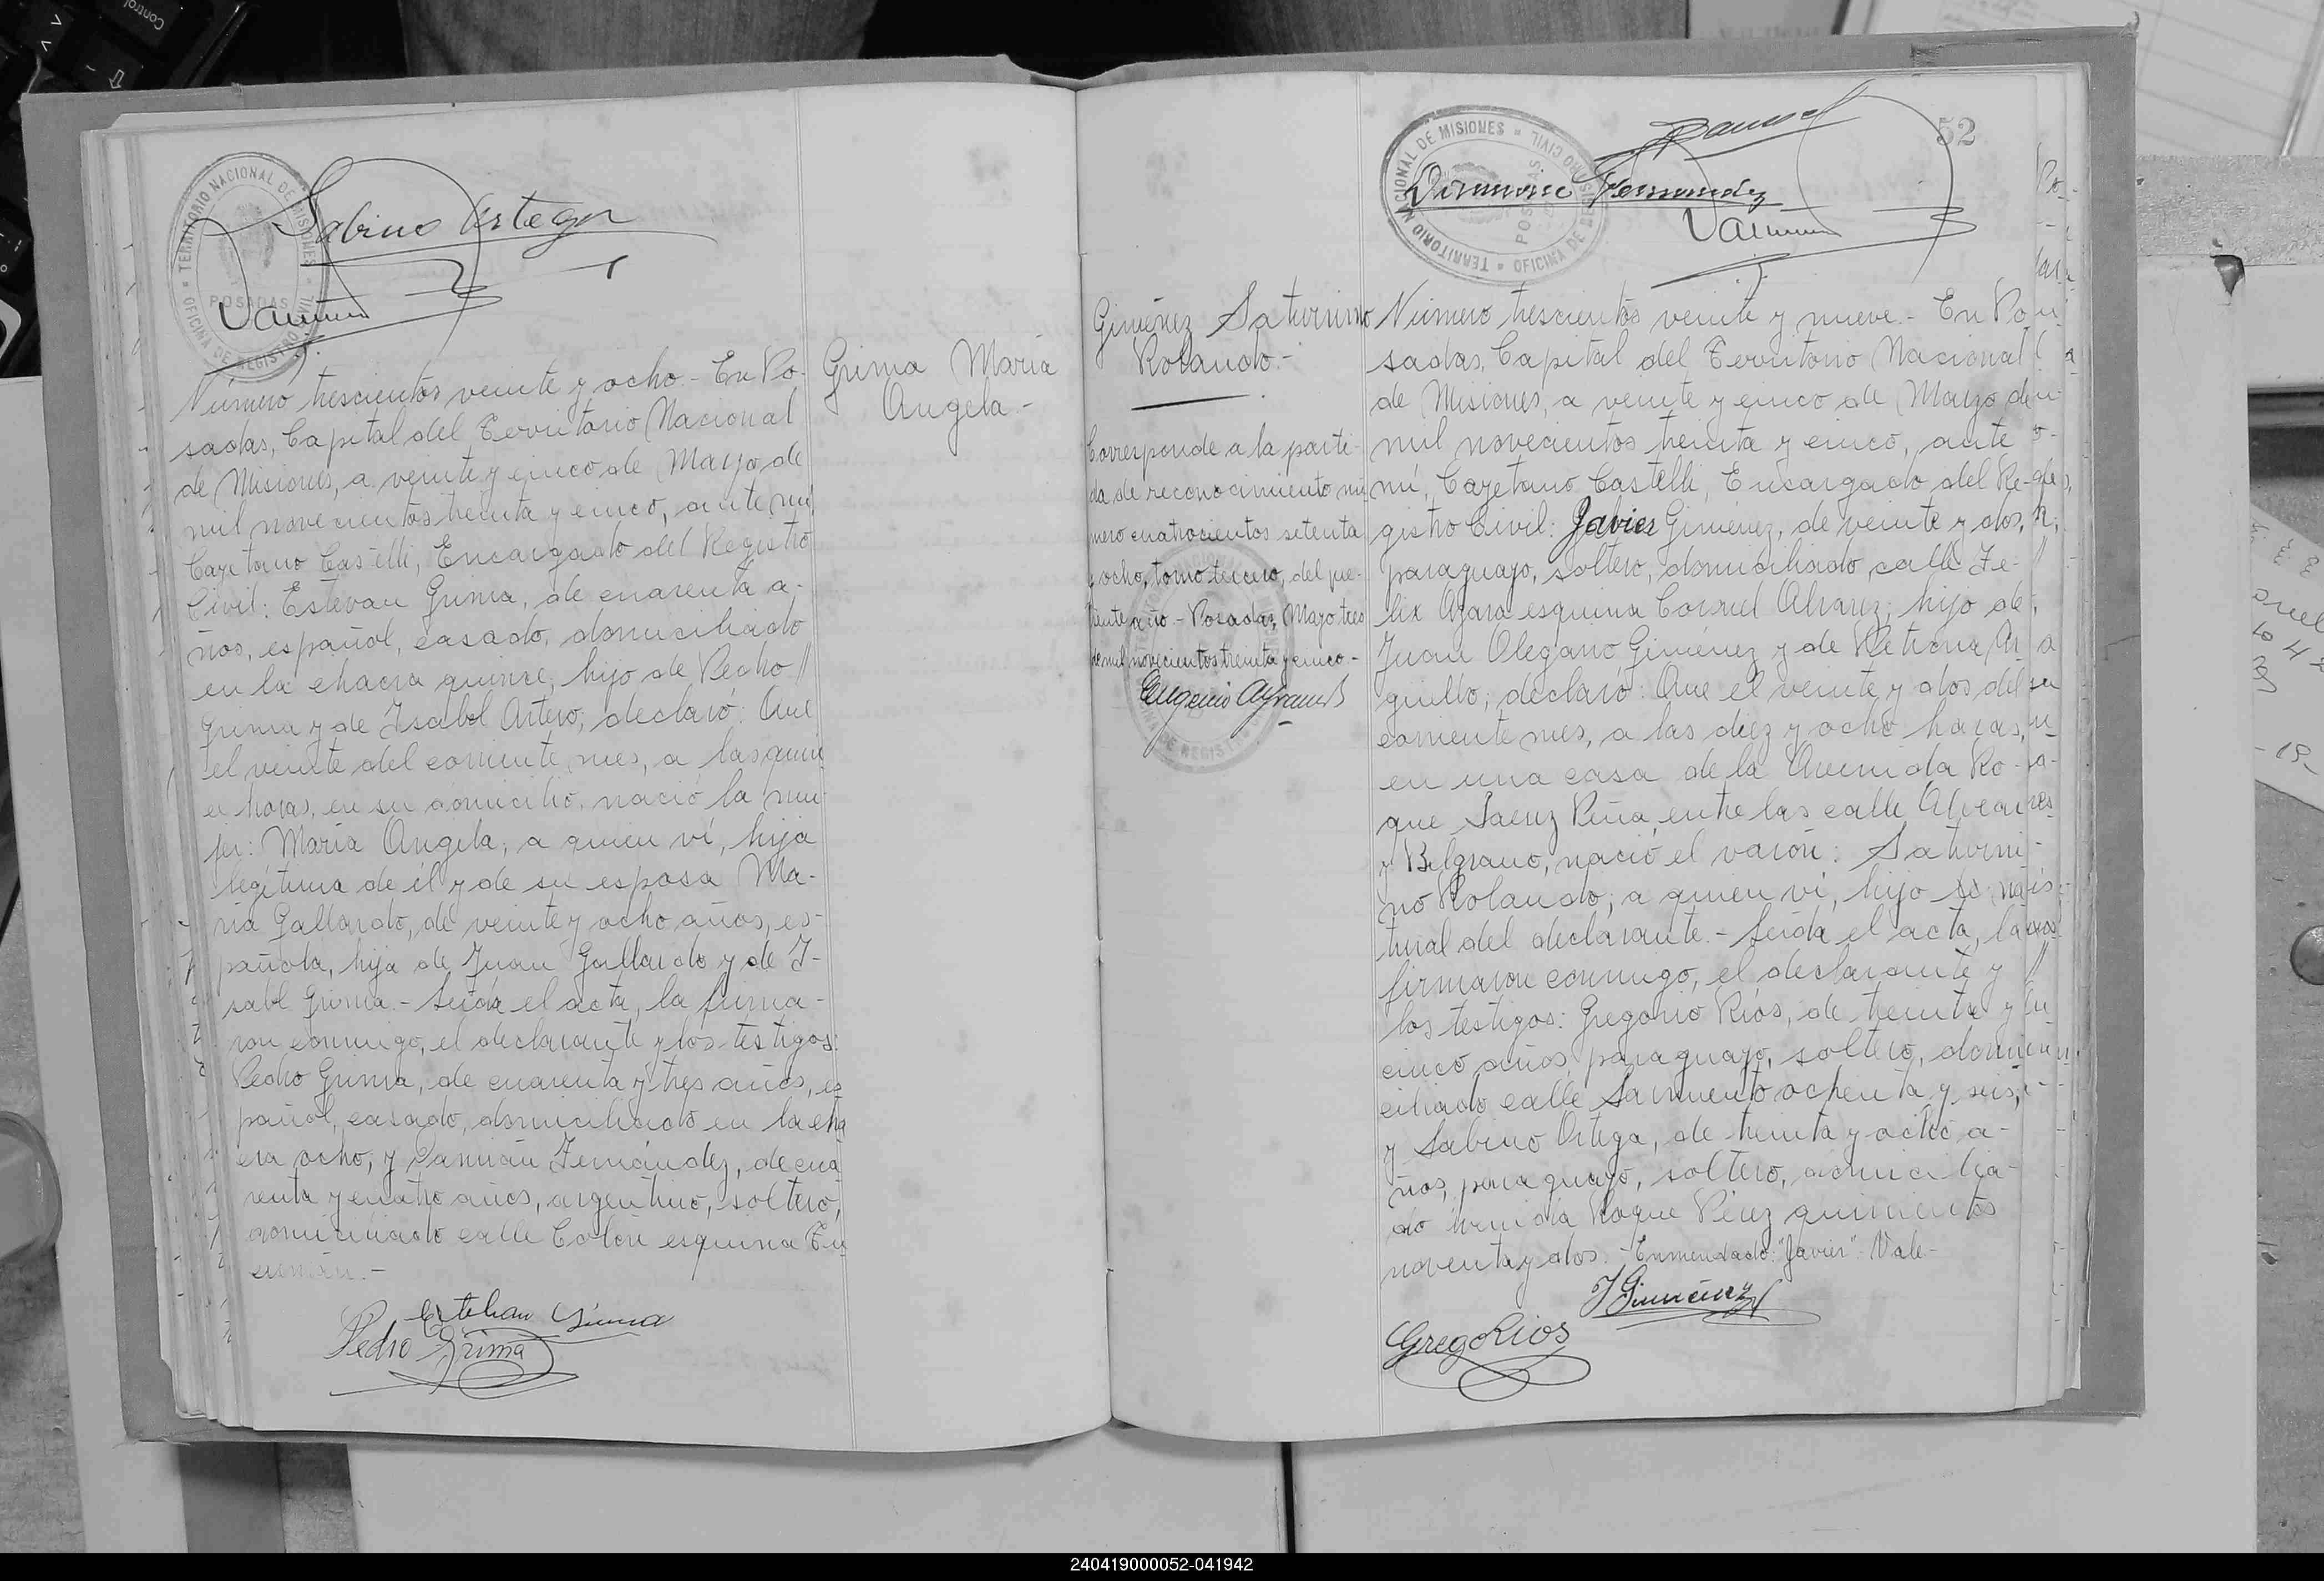 TERRITORIO NACIONAL DE MISIONES
OFICINA DE REGISTRO CIVIL
POSADAS
Sabino Ortega
Número trescientos veinte y ocho.- En Po-
sadas, Capital del Territorio Nacional
de Misiones, a veinte y cinco de Mayo de
mil novecientos treinta y cinco, ante mi
Cayetano Castelli, Encargado del Registro
Civil: Estevan Grima, de cuarenta a-
ños, español, casado, domiciliado
en la chacra quince; hijo de Pedro //
Grima y de Isabel Artero; declaró: Que
el veinte del corriente mes, a las quin
ce horas, en su domicilio, nació la mu-
jer: María Angela; a quien ví, hija
legítima de él y de su esposa Ma-
ría Gallardo, de veinte y ocho años, es-
pañola, hija de Juan Gallardo y de I-
sabel Grima.- Leída el acta, la firma-
ron conmigo, el declarante y los testigos:
Pedro Grima, de cuarenta y tres años, es
pañol, casado, domiciliado en la cha
cra ocho; y Damián Fernández, de cua
renta y cuatro años, argentino, soltero,
domiciliado calle Colón esquina Tu
cumán.-
Esteban Grima
Pedro Grima
Grima María
Angela.-
52
TERRITORIO NACIONAL DE MISIONES
OFICINA DE REGISTRO CIVIL
POSADAS
Fernandez
Giménez Saturnino
Rolando.-
Corresponde a la parti-
da de reconocimiento nú
mero cuatrocientos setenta
y ocho, tomo tercero, del pre-
sente año.- Posadas, Mayo tres
de mil novecientos treinta y cinco.-
Eugenio
Número trescientos veinte y nueve.- En Po
sadas, Capital del Territorio Nacional
de Misiones, a veinte y cinco de Mayo de
mil novecientos treinta y cinco, ante
mí, Cayetano Castelli, Encargado del Re-
gistro Civil: Javier Giménez, de veinte y dos,
paraguayo, soltero, domiciliado calle Fe-
lix Azara esquina Coronel Alvarez; hijo de
Juan Olegario Giménez y de Petrona Ar
guello; declaró: Que el veinte y dos del
corriente mes, a las diez y ocho horas,
en una casa de la Avenida Ro-
que Saenz Peña, entre las calle Alvear
y Belgrano, nació el varón: Saturni-
no Rolando; a quien ví, hijo na
tural del declarante.- Leída el acta, la
firmaron conmigo, el declarante y
los testigos: Gregorio Ríos, de treinta y
cinco años, paraguayo, soltero, domi
ciliado calle Sarmiento ochenta y seis;
y Sabino Ortega, de treinta y ocho a-
ños, paraguayo, soltero, domicilia-
do Avenida Roque Pérez quinientos
noventa y dos.- Enmendado: "Javier": Vale-
J Giménez
Grego Rios
240419000052-041942